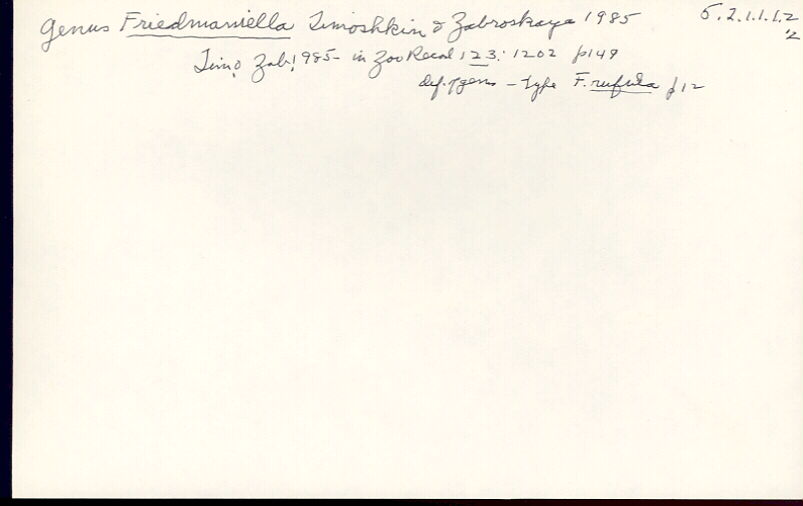 Genus Friedmaniella Timoshkin & Zabroskaya 1985 5.2.1.1.1.2
.2
Tim & Zab 1985 - in Zoo Record 123: 1202 p149
def. of gens - type F. rufula p12